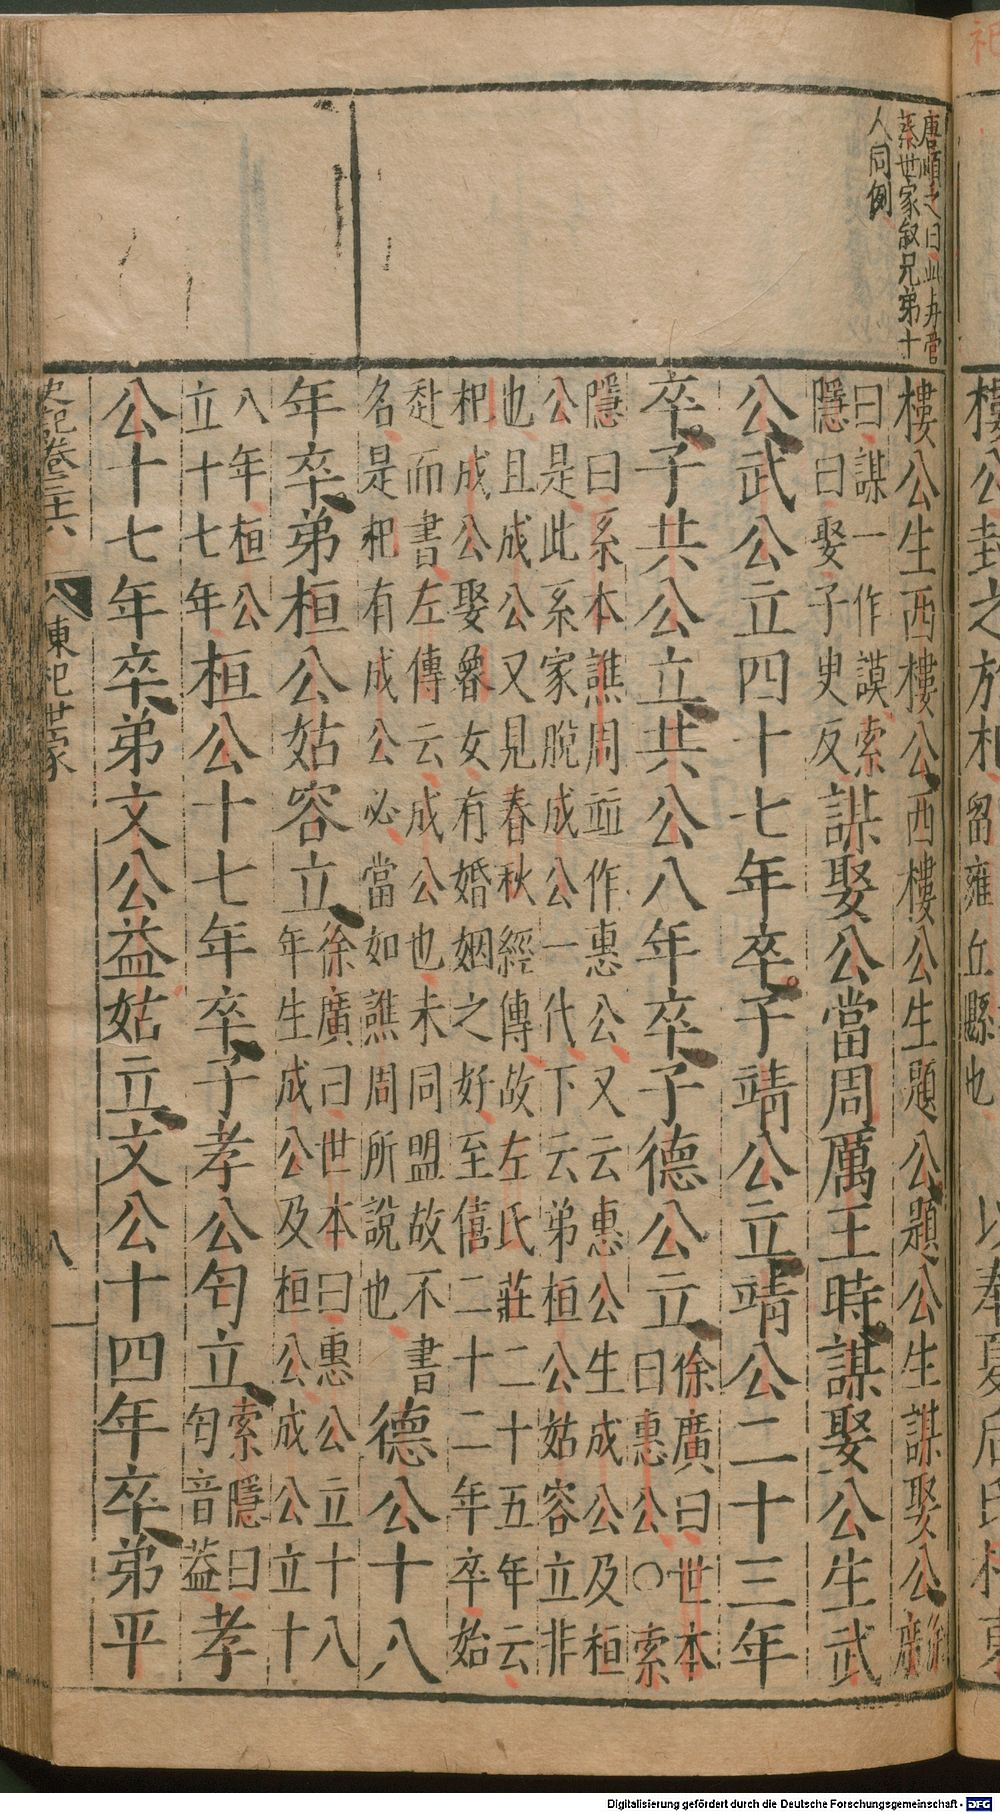 唐順之曰此與管
蔡世家叙兄弟十
人同例
樓公生西樓公西樓公生題公題公生謀娶公徐廣
曰謀一作謨索
隱曰娶子臾反謀娶公當周厲王時謀娶公生武
公武公立四十七年卒子靖公立靖公二十三年
卒子共公立共公八年卒子德公立徐廣曰世本
曰惠公○索
隱曰系本譙周竝作惠公又云惠公生成公及桓
公是此系家脫成公一代下云弟桓公姑容立非
也且成公又見春秋經傳故左氏莊二十五年云
杞成公娶魯女有婚姻之好至僖二十二年卒始
赴而書左傳云成公也未同盟故不書
名是杞有成公必當如譙周所說也德公十八
年卒弟桓公姑容立徐廣曰世本曰惠公立十八
年生成公及桓公成公立十
八年桓公
立十七年桓公十七年卒子孝公匄立索隱曰
匄音益孝
公十七年卒弟文公益姑立文公十四年卒弟平
史記卷三十六
陳杞世家
八
樓公封之於杞
留雍丘縣也
以奉夏后氏
Digitalisierung gefördert durch die Deutsche Forschungsgemeinschaft - DFG